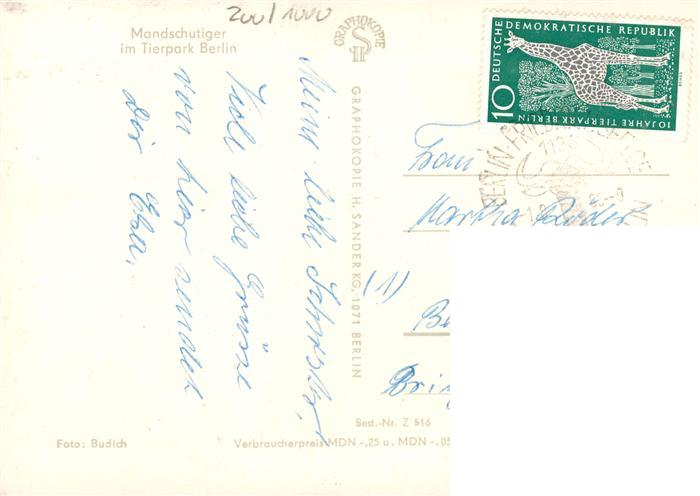 200/1000
Mandschutiger
im Tierpark Berlin
Meine liebe Schwester,
Viele liebe Grüsse
von hier sendet
dir Ella.
GRAPHOKOPIE
GRAPHOKOPIE H. SANDER KG, 1071 BERLIN
DEUTSCHE DEMOKRATISCHE REPUBLIK
10
10 JAHRE TIERPARK BERLIN
BERLIN-FRIEDRICHSFELDE
Frau
Martha Röder
(1)
Best.-Nr. Z 516
Foto: Budich
Verbraucherpreis MDN -,25 u. MDN -,05